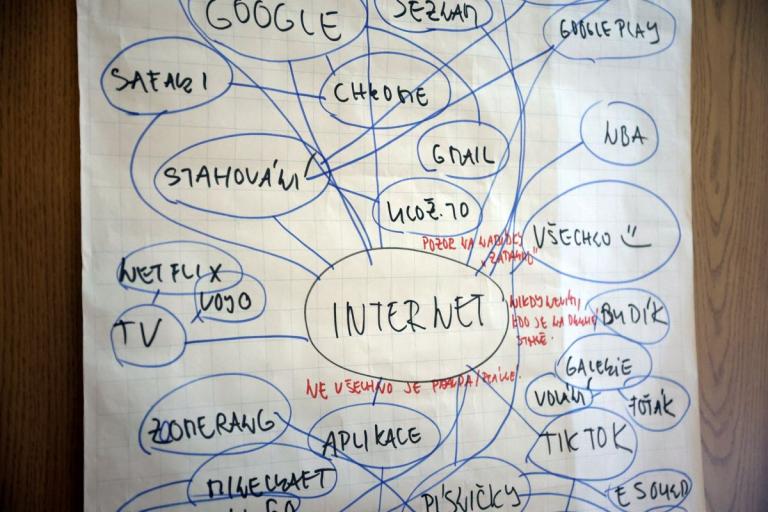 GOOGLE
SEZNAM
GOOGLE PLAY
SAFARI
CHROME
NBA
GMAIL
STAHOVÁNÍ
ULOŽ.TO
POZOR NA NABÍDKY
„ZADARMO“
VŠECHNO
NETFLIX
VOYO
INTERNET
NIKDY NEVÍŠ,
KDO JE NA DRUHÉ
STRANĚ.
BUDÍK
TV
GALERIE
NE VŠECHNO JE PRAVDA/REÁLNÉ.
VOLÁNÍ
FOŤÁK
ZOOMERANG
APLIKACE
TIKTOK
MINECRAFT
PÍSNIČKY